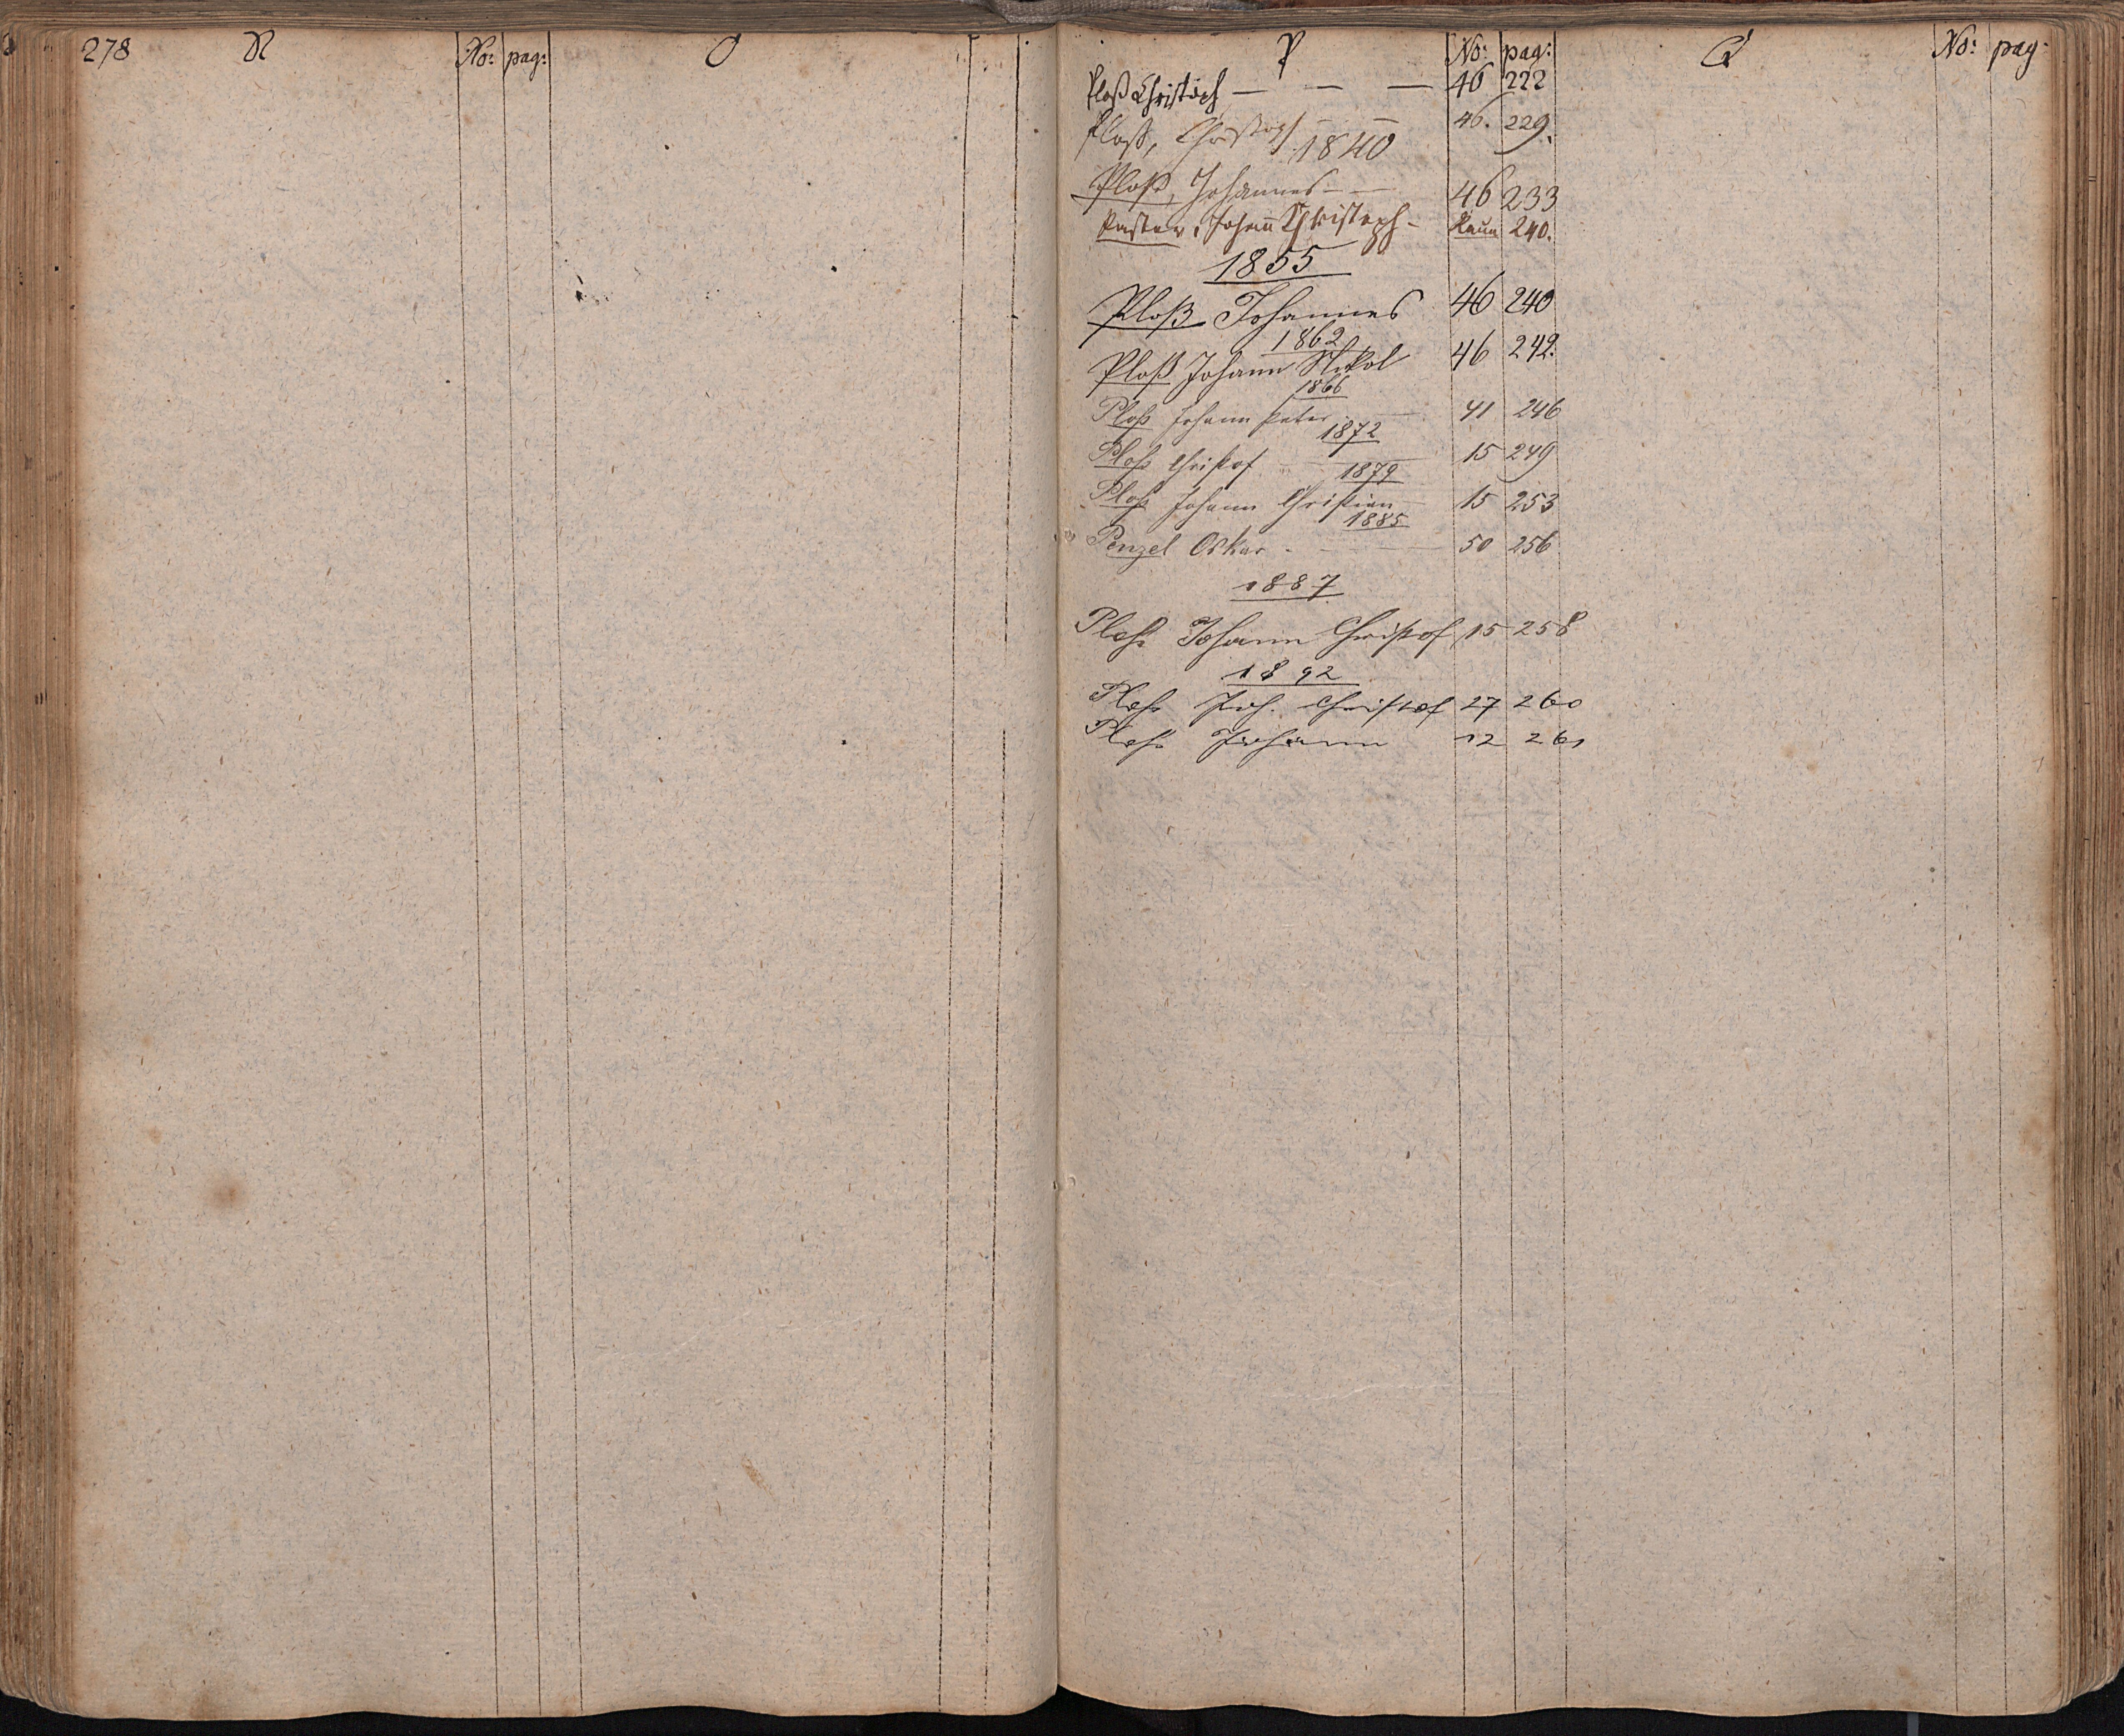 278 N No: pag: O
P No: pag: Q No: pag:
Ploß Christoph — — — 46 222
Ploß, Christoph — 46. 229.
1840
Ploß, Johannes — — 46 233
Paster, Johann Christoph - Raun 240.
1855
Ploß Johannes 46 240
1862
Ploß Johann Nikol 46 242.
1866
Ploß Johann Peter — 41 246
1872
Ploß Christof — 15 249
1879
Ploß Johann Christian 15 253
1885
Penzel Oskar - — 50 256
1887
Ploß Johann Christof 15 258
1892
Ploß Joh. Christof 27 260
Ploß Johann 12 261